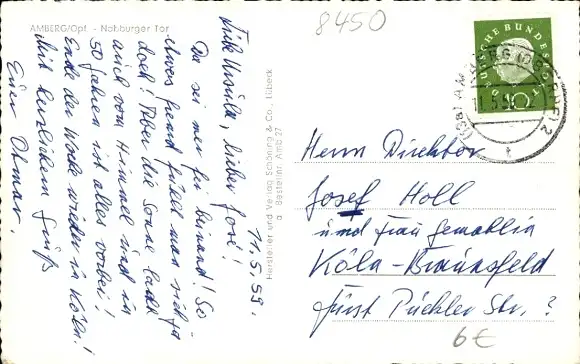 8450
AMBERG/Opf. - Nabburger Tor
11.5.59.
Liebe Ursula, lieber José!
Da sei mer fei beinand! So
etwas fremd fühlt man sich ja
doch! Aber die Sonne lacht
auch vom Himmel und in
50 Jahren ist alles vorbei!
Ende der Woche wieder in Köln!
Mit herzlichem Gruß
Euer Otmar.
Hersteller und Verlag Schöning & Co., Lübeck
Bestellnr. Amb 27
DEUTSCHE BUNDESPOST
10
AMBERG (OBERPF) 2
Herrn Direktor
Josef Holl
und Frau Gemahlin
Köln-Braunsfeld
Fürst Pückler Str. ?
6€